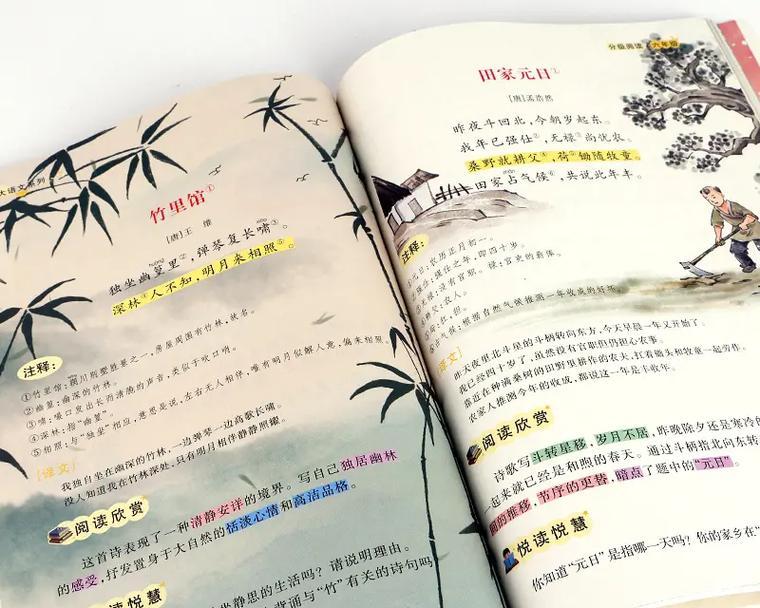 大语文系列
竹里馆①
[唐]王 维
独坐幽篁里②，弹琴复长啸③。
深林④人不知，明月来相照⑤。
注释：
①竹里馆：辋川别墅胜景之一，房屋周围有竹林，故名。
②幽篁：幽深的竹林。
③啸：嘬口发出长而清脆的声音，类似于吹口哨。
④深林：指“幽篁”。
⑤相照：与“独坐”相应，意思是说，左右无人相伴，唯有明月似解人意，偏来相照。
[译文]
我独自坐在幽深的竹林，一边弹琴一边高歌长啸。
没人知道我在竹林深处，只有明月相伴静静照耀。
阅读欣赏
这首诗表现了一种清静安详的境界。写自己独居幽林
的感受，抒发置身于大自然的恬淡心情和高洁品格。
悦读悦慧
坐静思的生活吗？请说明理由。
背诵与“竹”有关的诗句吗
分级阅读 六年级
田家元日①
[唐]孟浩然
昨夜斗回北，今朝岁起东。
我年已强仕②，无禄③尚忧农。
桑野就耕父④，荷⑤锄随牧童。
田家占气候⑥，共说此年丰。
注释：
①元日：农历正月初一。
②强仕：强仕之年，即四十岁。
③无禄：没有官职。禄：官吏的薪俸。
④耕父：农人。
⑤荷：扛，担。
⑥占气候：根据自然气候推测一年收成的好坏。
[译文]
昨天夜里北斗星的斗柄转向东方，今天早晨一年又开始了。
我已经四十岁了，虽然没有官职但仍担心农事。
靠近在种满桑树的田野里耕作的农夫，扛着锄头和牧童一起劳作。
农家人推测今年的收成，都说这一年是丰收年。
阅读欣赏
诗歌写斗转星移，岁月不居，昨晚除夕还是寒冷的
一起来就已经是和煦的春天。通过斗柄指北向东转
的推移，节序的更替，暗点了题中的“元日”。
悦读悦慧
你知道“元日”是指哪一天吗？你的家乡在“